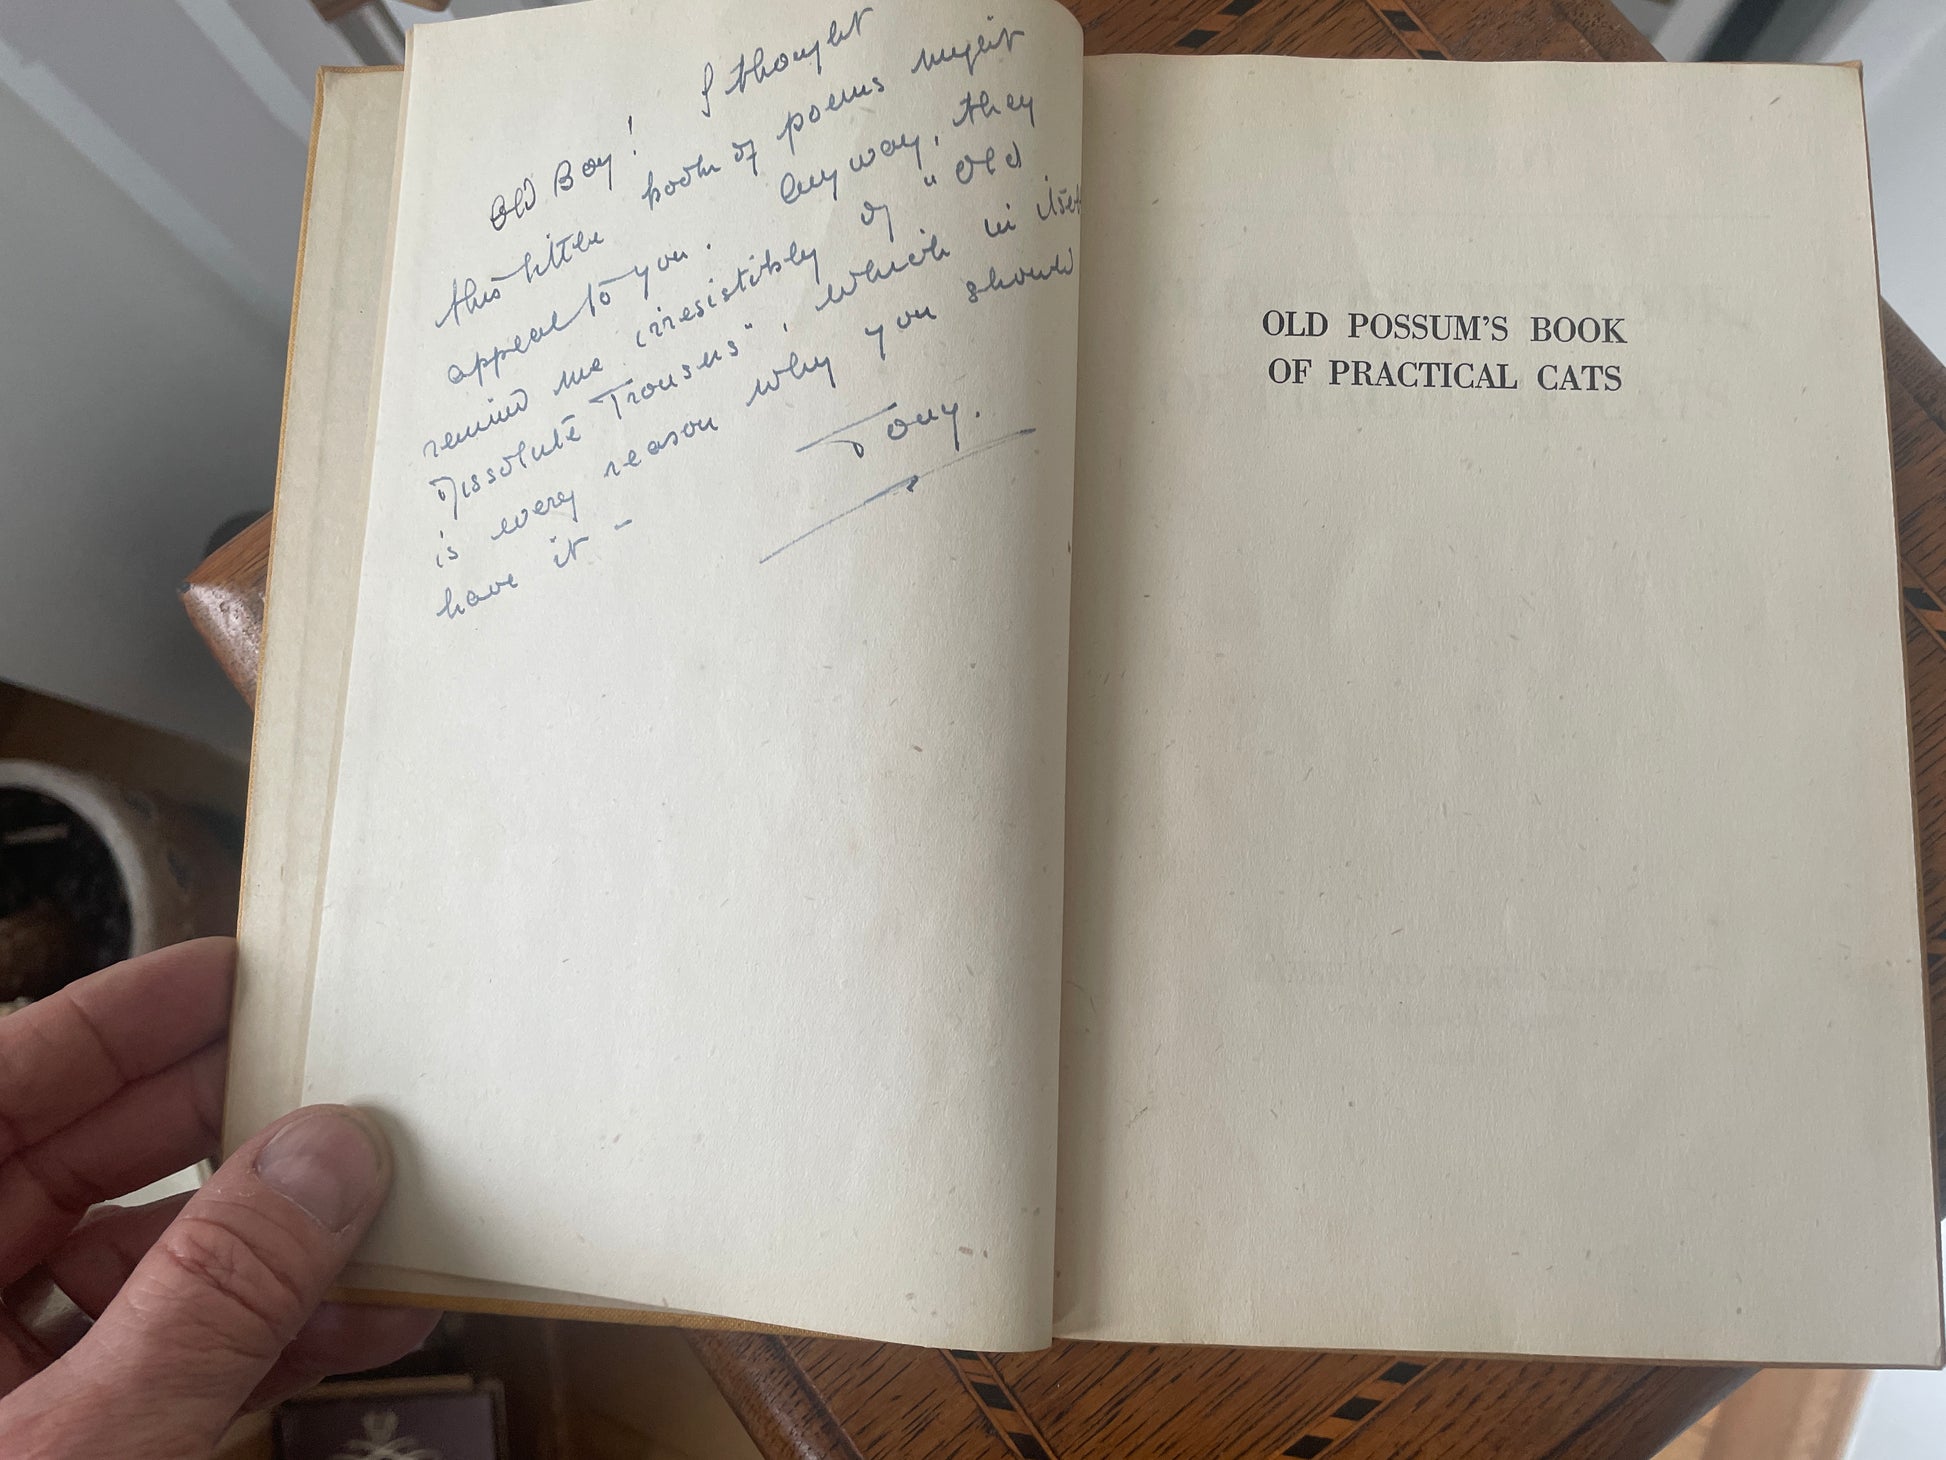 Old Boy! I thought
this little book of poems might
appeal to you. Anyway, they
remind me irresistibly of "Old
Dissolute Trousers", which in itself
is every reason why you should
have it -
Tony.
OLD POSSUM'S BOOK
OF PRACTICAL CATS